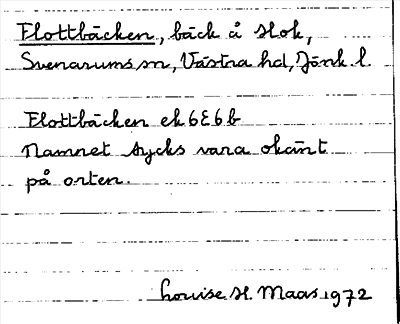 Flottbäcken, bäck å Hok,
Svenarums sn, Västra hd, Jönk. l.
Flottbäcken ek 6E6b
Namnet tycks vara okänt
på orten.
Louise H. Maas 1972